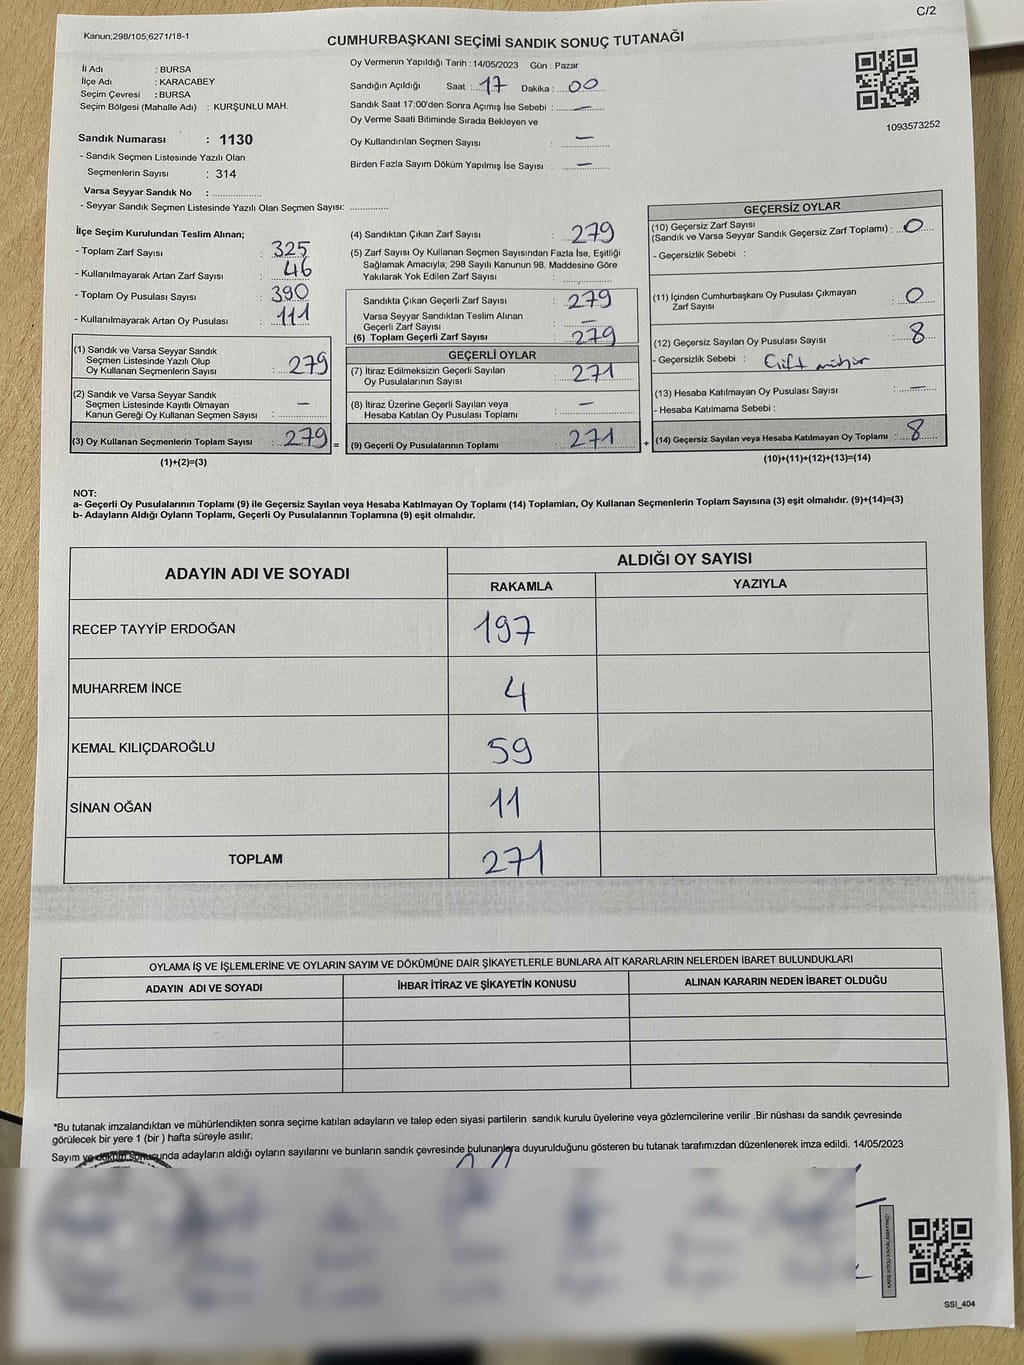 C/2
Kanun;298/105;6271/18-1
CUMHURBAŞKANI SEÇİMİ SANDIK SONUÇ TUTANAĞI
İl Adı : BURSA
İlçe Adı : KARACABEY
Seçim Çevresi : BURSA
Seçim Bölgesi (Mahalle Adı) : KURŞUNLU MAH.
Sandık Numarası : 1130
- Sandık Seçmen Listesinde Yazılı Olan
Seçmenlerin Sayısı : 314
Varsa Seyyar Sandık No : ..............
- Seyyar Sandık Seçmen Listesinde Yazılı Olan Seçmen Sayısı: ............
Oy Vermenin Yapıldığı Tarih : 14/05/2023 Gün : Pazar
Sandığın Açıldığı Saat : 17 Dakika : 00
Sandık Saat 17:00'den Sonra Açımış İse Sebebi : —
Oy Verme Saati Bitiminde Sırada Bekleyen ve
Oy Kullandırılan Seçmen Sayısı : —
Birden Fazla Sayım Döküm Yapılmış İse Sayısı : —
1093573252
İlçe Seçim Kurulundan Teslim Alınan;
- Toplam Zarf Sayısı : 325
- Kullanılmayarak Artan Zarf Sayısı : 46
- Toplam Oy Pusulası Sayısı : 390
- Kullanılmayarak Artan Oy Pusulası : 111
(1) Sandık ve Varsa Seyyar Sandık
Seçmen Listesinde Yazılı Olup
Oy Kullanan Seçmenlerin Sayısı : 279
(2) Sandık ve Varsa Seyyar Sandık
Seçmen Listesinde Kayıtlı Olmayan
Kanun Gereği Oy Kullanan Seçmen Sayısı : —
(3) Oy Kullanan Seçmenlerin Toplam Sayısı : 279 =
(1)+(2)=(3)
(4) Sandıktan Çıkan Zarf Sayısı : 279
(5) Zarf Sayısı Oy Kullanan Seçmen Sayısından Fazla İse, Eşitliği
Sağlamak Amacıyla; 298 Sayılı Kanunun 98. Maddesine Göre
Yakılarak Yok Edilen Zarf Sayısı : ..............
Sandıkta Çıkan Geçerli Zarf Sayısı : 279
Varsa Seyyar Sandıktan Teslim Alınan
Geçerli Zarf Sayısı : —
(6) Toplam Geçerli Zarf Sayısı : 279
GEÇERLİ OYLAR
(7) İtiraz Edilmeksizin Geçerli Sayılan
Oy Pusulalarının Sayısı : 271
(8) İtiraz Üzerine Geçerli Sayılan veya
Hesaba Katılan Oy Pusulası Toplamı : —
(9) Geçerli Oy Pusulalarının Toplamı : 271 +
GEÇERSİZ OYLAR
(10) Geçersiz Zarf Sayısı
(Sandık ve Varsa Seyyar Sandık Geçersiz Zarf Toplamı) : 0
- Geçersizlik Sebebi :
(11) İçinden Cumhurbaşkanı Oy Pusulası Çıkmayan
Zarf Sayısı : 0
(12) Geçersiz Sayılan Oy Pusulası Sayısı : 8
- Geçersizlik Sebebi : Çift mühür
(13) Hesaba Katılmayan Oy Pusulası Sayısı : —
- Hesaba Katılmama Sebebi :
(14) Geçersiz Sayılan veya Hesaba Katılmayan Oy Toplamı : 8
(10)+(11)+(12)+(13)=(14)
NOT:
a- Geçerli Oy Pusulalarının Toplamı (9) ile Geçersiz Sayılan veya Hesaba Katılmayan Oy Toplamı (14) Toplamları, Oy Kullanan Seçmenlerin Toplam Sayısına (3) eşit olmalıdır. (9)+(14)=(3)
b- Adayların Aldığı Oyların Toplamı, Geçerli Oy Pusulalarının Toplamına (9) eşit olmalıdır.
ADAYIN ADI VE SOYADI
ALDIĞI OY SAYISI
RAKAMLA YAZIYLA
RECEP TAYYİP ERDOĞAN 197
MUHARREM İNCE 4
KEMAL KILIÇDAROĞLU 59
SİNAN OĞAN 11
TOPLAM 271
OYLAMA İŞ VE İŞLEMLERİNE VE OYLARIN SAYIM VE DÖKÜMÜNE DAİR ŞİKAYETLERLE BUNLARA AİT KARARLARIN NELERDEN İBARET BULUNDUKLARI
ADAYIN ADI VE SOYADI İHBAR İTİRAZ VE ŞİKAYETİN KONUSU ALINAN KARARIN NEDEN İBARET OLDUĞU
*Bu tutanak imzalandıktan ve mühürlendikten sonra seçime katılan adayların ve talep eden siyasi partilerin sandık kurulu üyelerine veya gözlemcilerine verilir .Bir nüshası da sandık çevresinde
görülecek bir yere 1 (bir ) hafta süreyle asılır.
Sayım ve döküm sonucunda adayların aldığı oyların sayılarını ve bunların sandık çevresinde bulunanlara duyurulduğunu gösteren bu tutanak tarafımızdan düzenlenerek imza edildi. 14/05/2023
KARE KODU KARALAMAYINIZ!
SSI_404